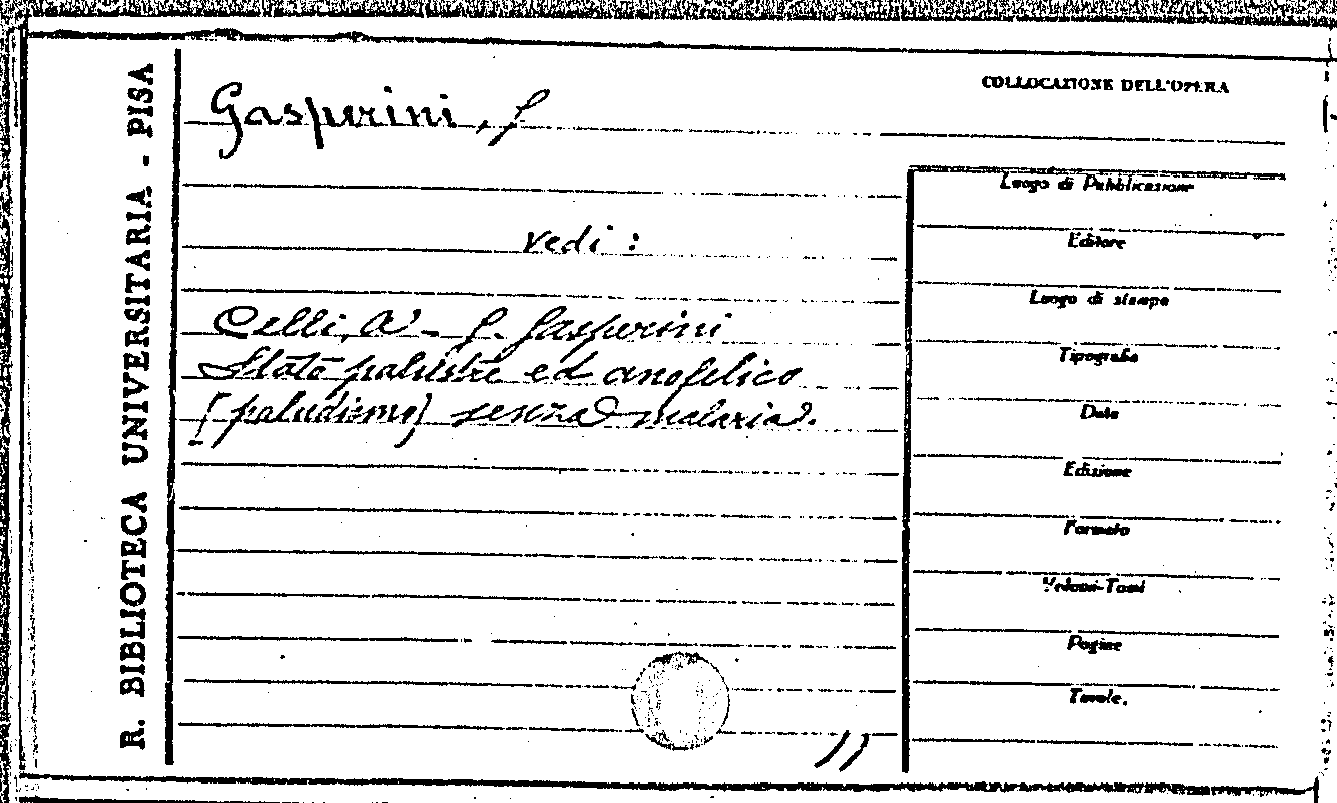 R. BIBLIOTECA UNIVERSITARIA - PISA
Gasperini, G
COLLOCAZIONE DELL'OPERA
vedi :
Celli, A - G. Gasperini
Stato palustre ed anofelico
[paludismo] senza malaria.
Luogo di Pubblicazione
Editore
Luogo di stampa
Tipografia
Data
Edizione
Formato
Volumi-Tomi
Pagine
Tavole.